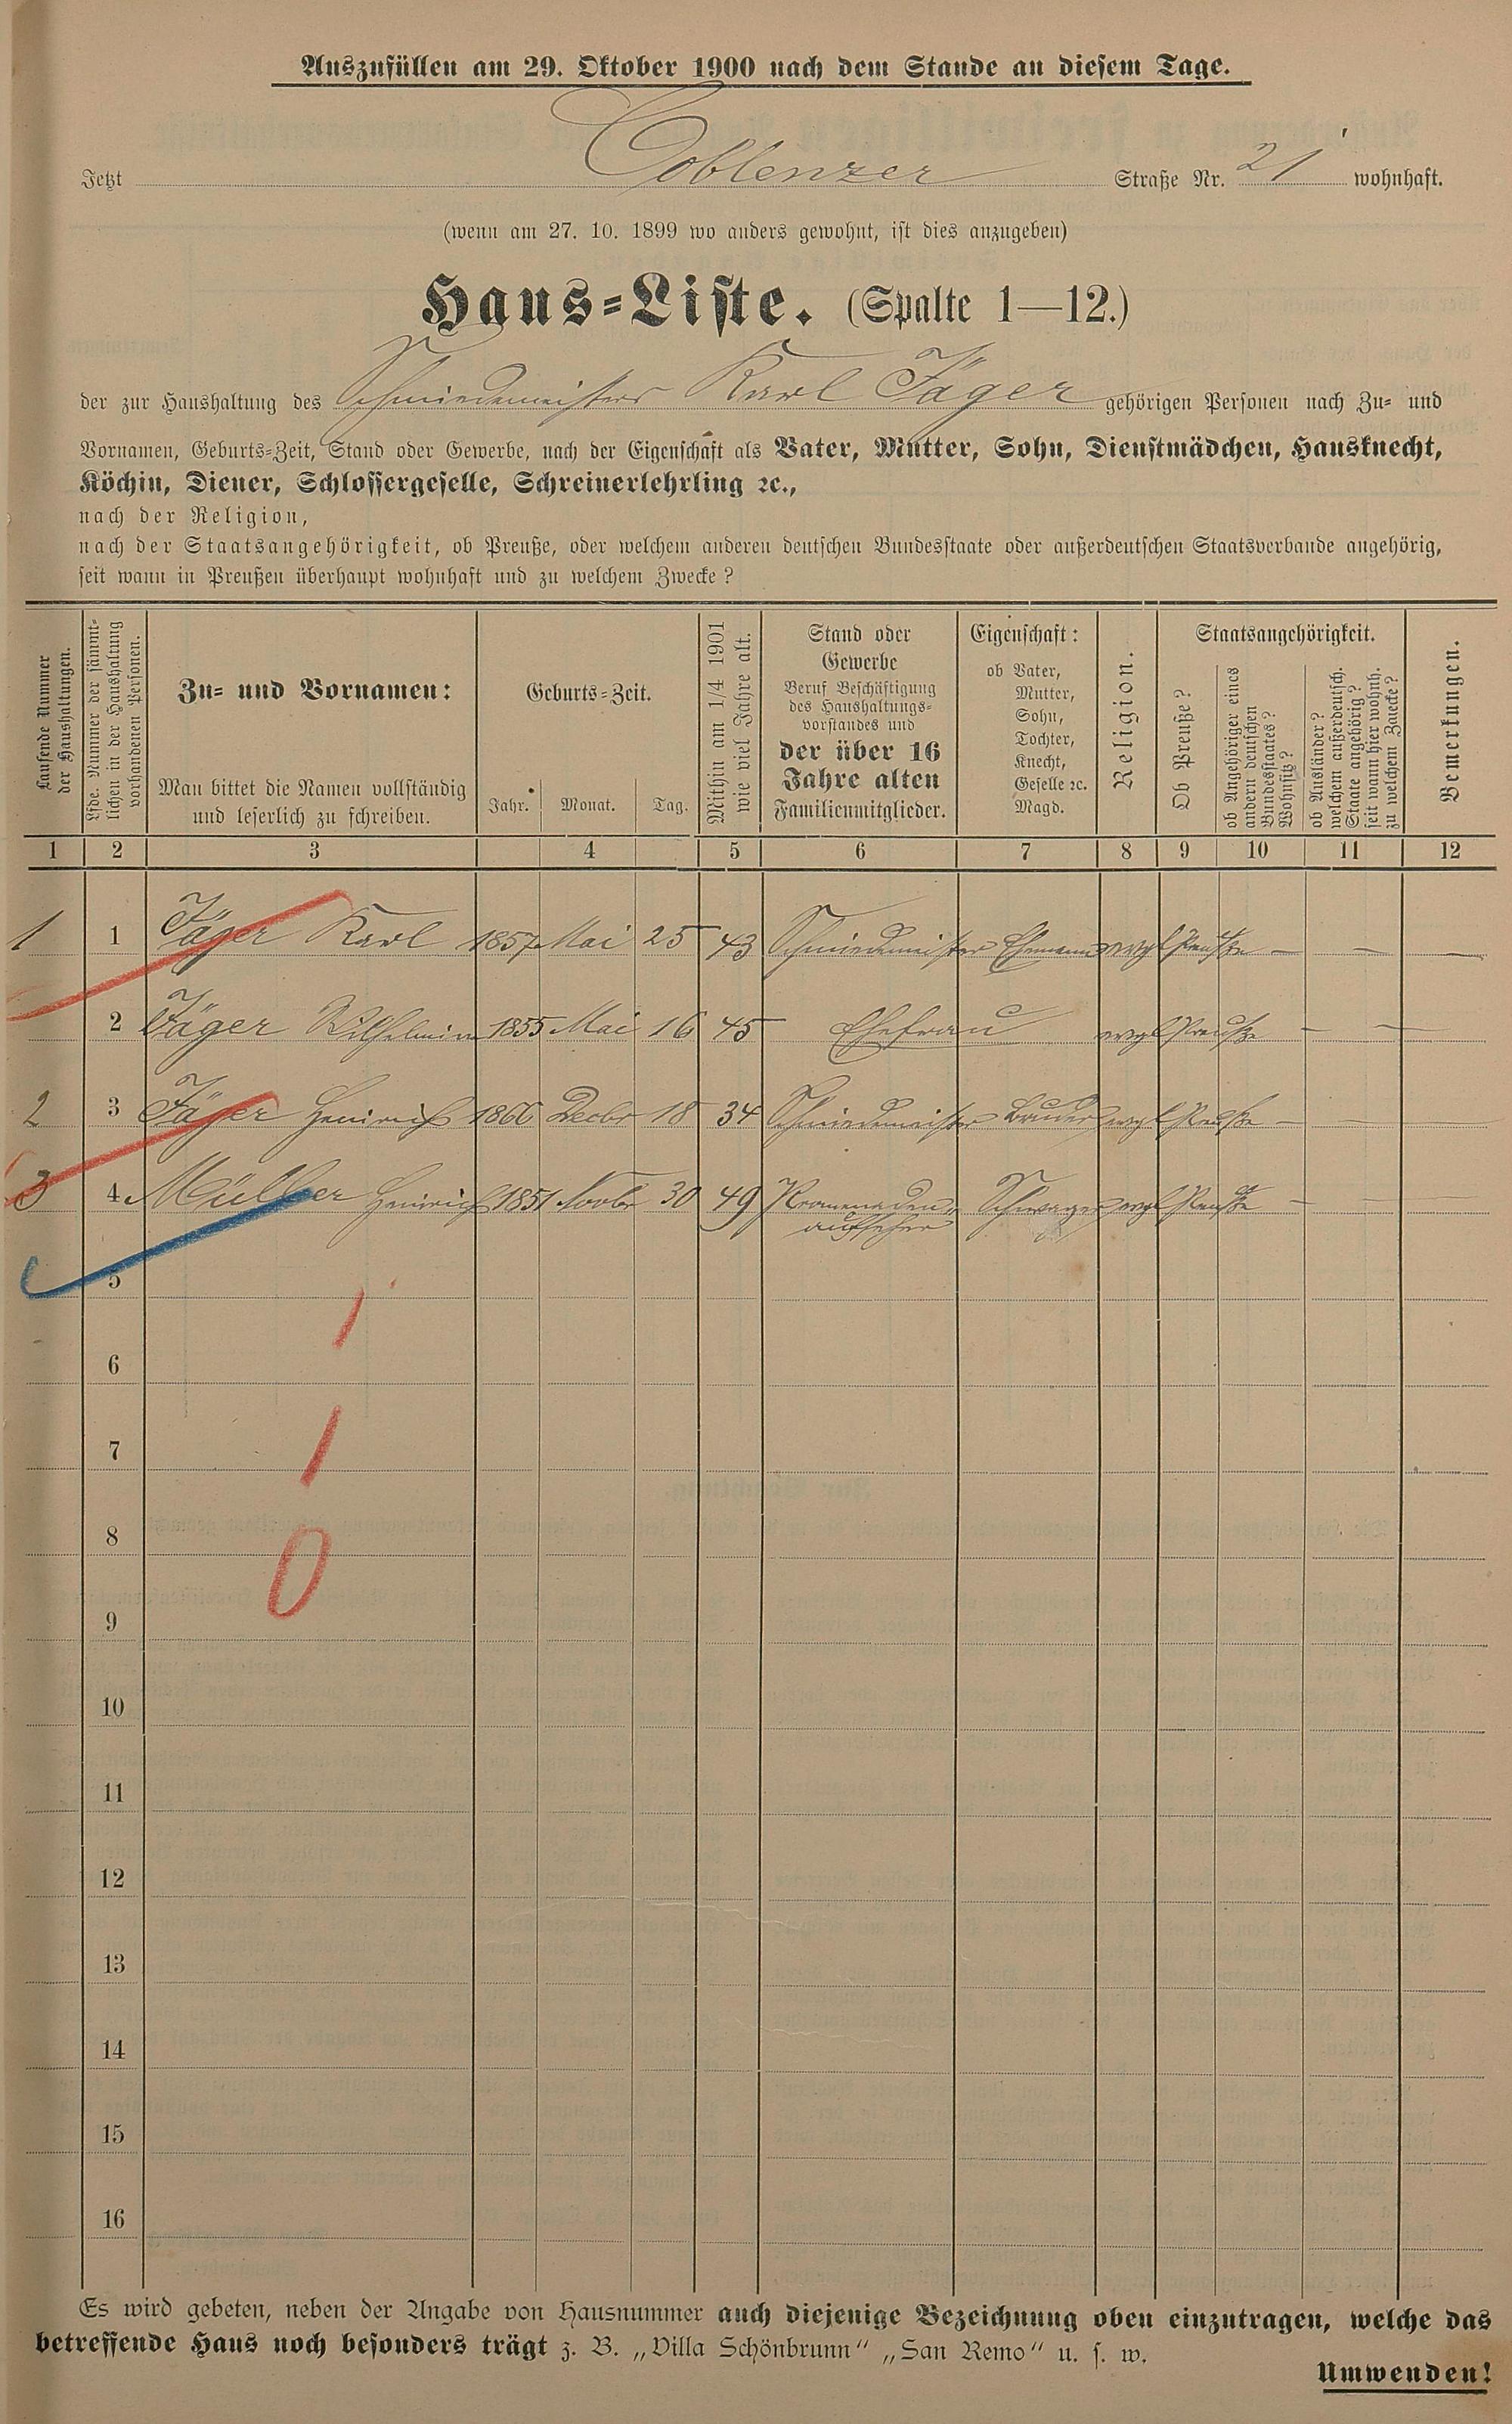 Auszufüllen am 29. Oktober 1900 nach dem Stande an diesem Tage.
Jetzt Coblenzer Straße Nr. 21 wohnhaft.
(wenn am 27. 10. 1899 wo anders gewohnt, ist dies anzugeben)
Haus-Liste. (Spalte 1—12.)
der zur Haushaltung des Schmiedemeisters Karl Jäger gehörigen Personen nach Zu- und
Vornamen, Geburts-Zeit, Stand oder Gewerbe, nach der Eigenschaft als Vater, Mutter, Sohn, Dienstmädchen, Hausknecht,
Köchin, Diener, Schlossergeselle, Schreinerlehrling ꝛc.,
nach der Religion,
nach der Staatsangehörigkeit, ob Preuße, oder welchem anderen deutschen Bundesstaate oder außerdeutschen Staatsverbande angehörig,
seit wann in Preußen überhaupt wohnhaft und zu welchem Zwecke?
Laufende Nummer
der Haushaltungen.
Lfde. Nummer der sämmt-
lichen in der Haushaltung
vorhandenen Personen.
Zu- und Vornamen:
Man bittet die Namen vollständig
und leserlich zu schreiben.
Geburts-Zeit.
Jahr. Monat. Tag.
Mithin am 1/4 1901
wie viel Jahre alt.
Stand oder
Gewerbe
Beruf Beschäftigung
des Haushaltungs-
vorstandes und
der über 16
Jahre alten
Familienmitglieder.
Eigenschaft:
ob Vater,
Mutter,
Sohn,
Tochter,
Knecht,
Geselle ꝛc.
Magd.
Religion.
Staatsangehörigkeit.
Ob Preuße?
ob Angehöriger eines
andern deutschen
Bundesstaates?
Wohnsitz?
ob Ausländer?
welchem außerdeutsch.
Staate angehörig?
seit wann hier wohnh.
zu welchem Zwecke?
Bemerkungen.
1 2 3 4 5 6 7 8 9 10 11 12
1 1 Jäger Karl 1857 Mai 25 43 Schmiedemeister Ehemann evgl Preuße — — —
2 Jäger Wilhelmine 1855 Mai 16 45 Ehefrau evgl Preuße — —
2 3 Jäger Heinrich 1866 Decbr 18 34 Schmiedemeister Bruder evgl Preuße — — —
3 4 Müller Heinrich 1851 Novbr 30 49 Promenaden- Schwager evgl Preuße — — —
aufseher
5
1
6
7
1
8
0
9
10
11
12
13
14
15
16
Es wird gebeten, neben der Angabe von Hausnummer auch diejenige Bezeichnung oben einzutragen, welche das
betreffende Haus noch besonders trägt z. B. „Villa Schönbrunn“ „San Remo“ u. s. w.
Umwenden!